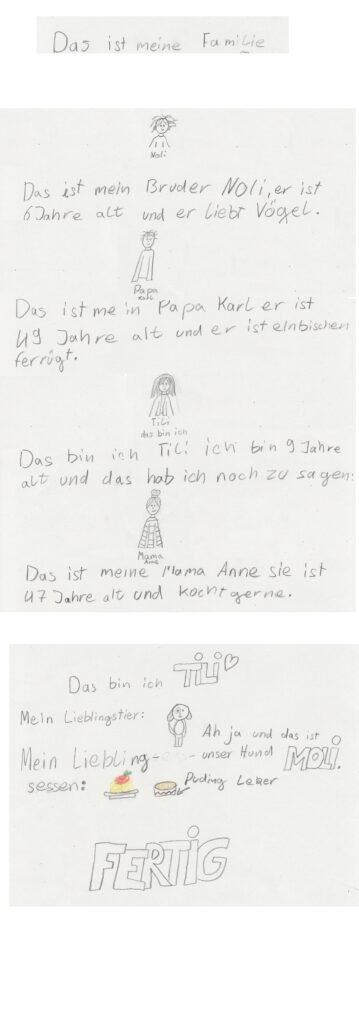 Das ist meine Familie
Noli
Das ist mein Bruder Noli, er ist
6 Jahre alt und er liebt Vögel.
Papa
Karl
Das ist mein Papa Karl er ist
49 Jahre alt und er ist einbischen
ferrügt.
TiLi
das bin ich
Das bin ich TiLi ich bin 9 Jahre
alt und das hab ich noch zu sagen:
Mama
Anne
Das ist meine Mama Anne sie ist
47 Jahre alt und kocht gerne.
Das bin ich TiLi
Mein Lieblingstier:
Ah ja und das ist
unser Hund MOLi.
Mein Liebling-
sessen:
Puding Leker
FERTiG